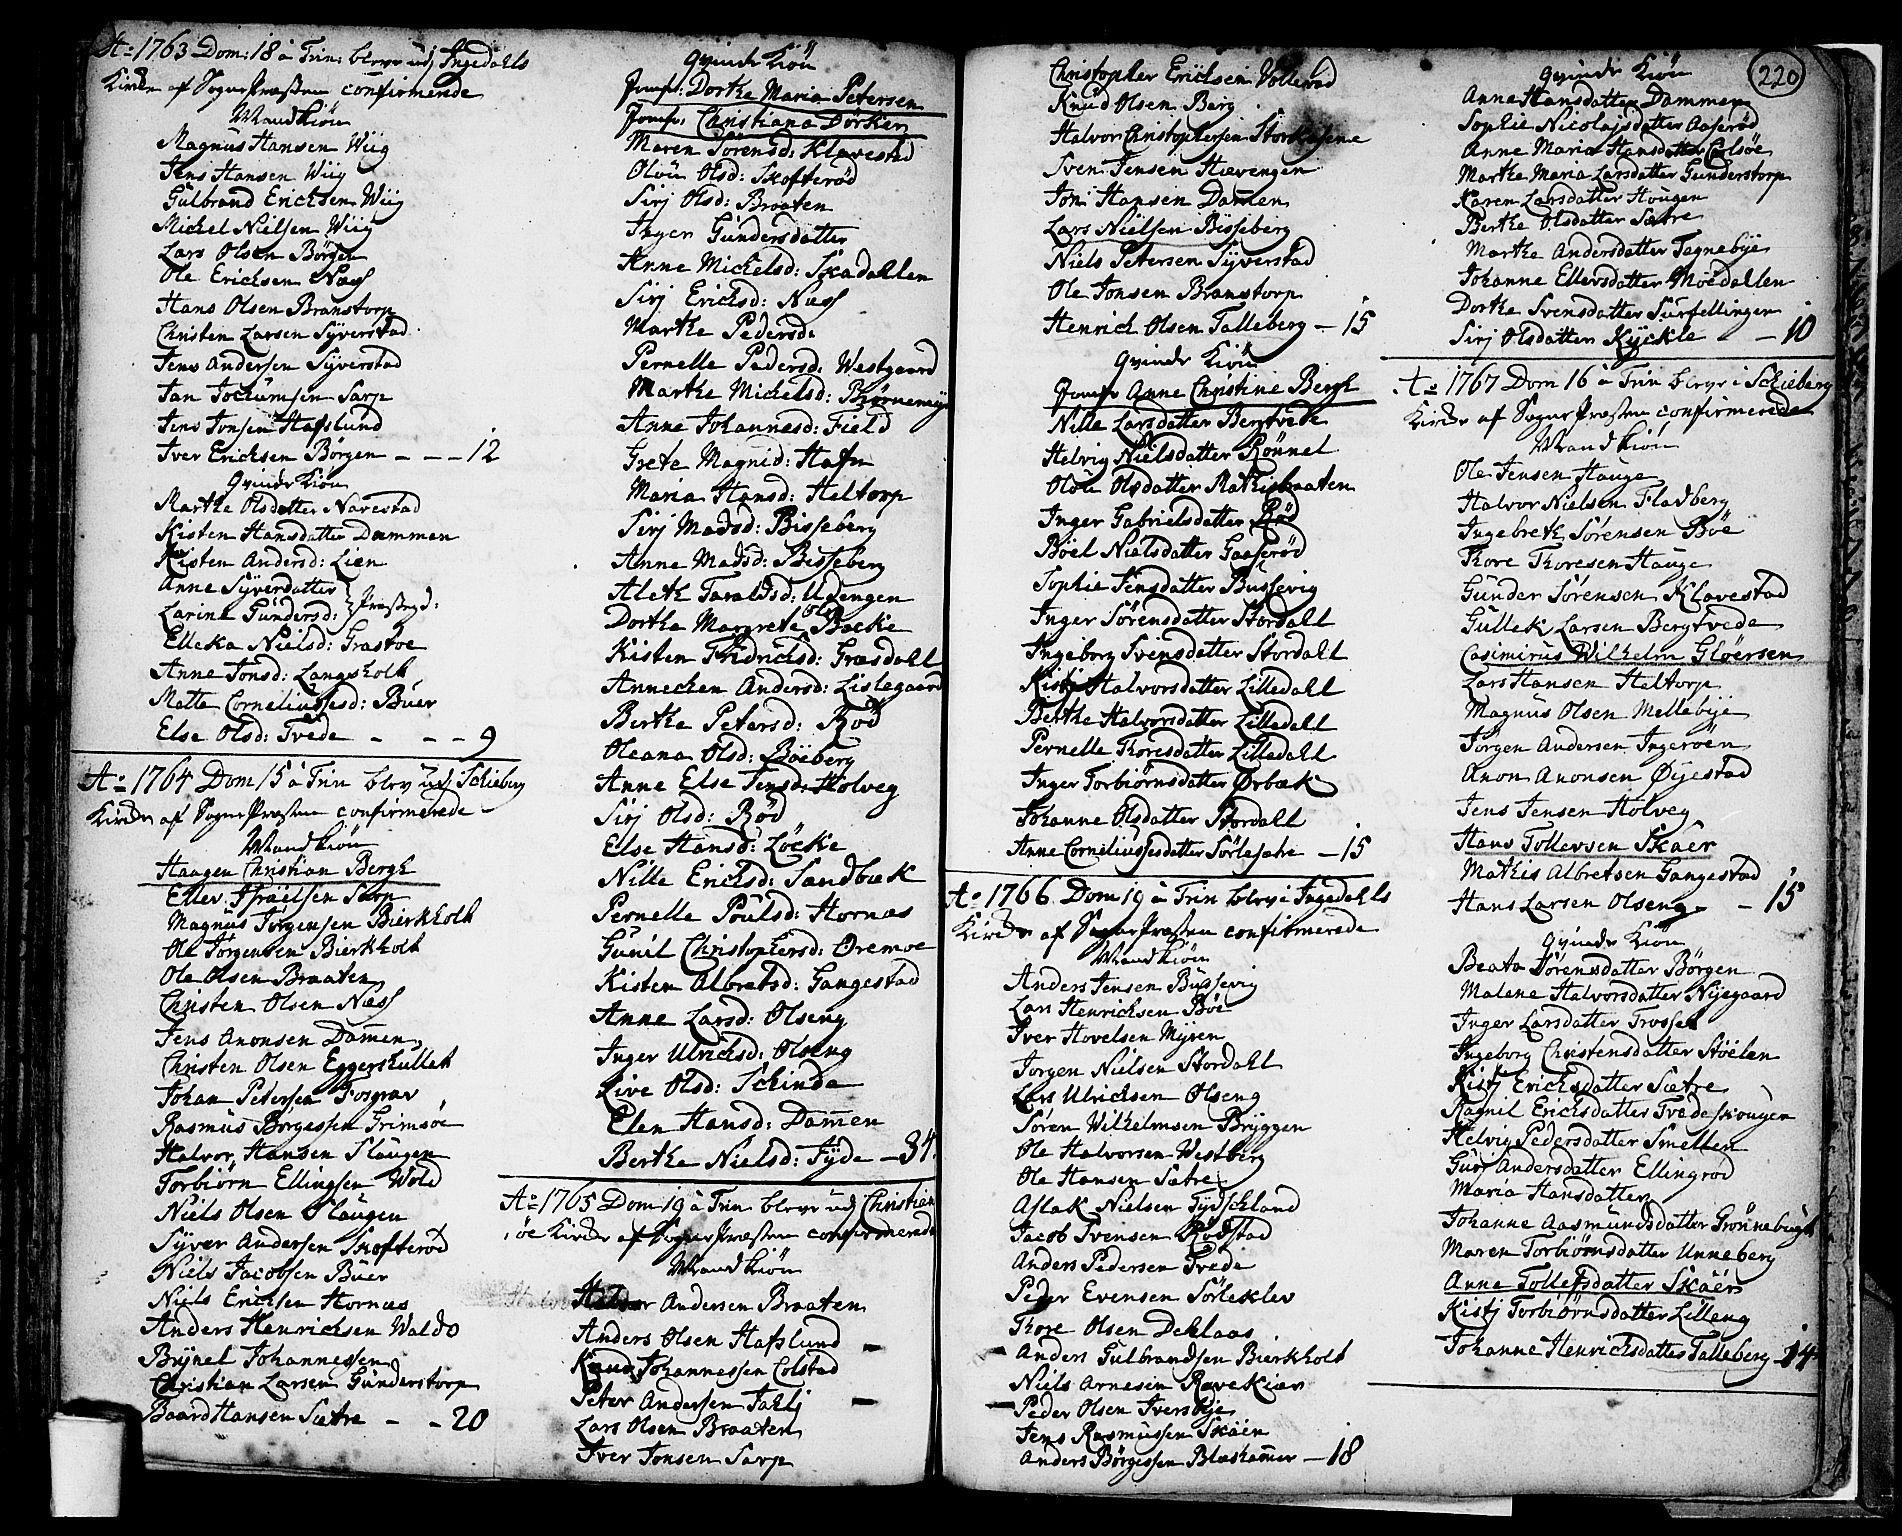 Ao 1763 Dom: 18 à Trin: blev udj Ingedahls
Kirke af Sogne Præsten confirmerede
Mandkiön
Magnus Hansen Wiig
Jens Hansen Wiig
Gulbrand Ericksen Wiig
Michel Nielsen Wiig
Lars Olsen Börgen
Ole Ericksen Næss
Hans Olsen Branstorp
Christen Larsen Syverstad
Jens Andersen Syverstad
Jan Jochumsen Sarp
Jens Jonsen Hafslund
Iver Ericksen Börgen - - - 12
Qvinde Kiön
Marthe Olsdatter Navestad
Kisten Hansdatter Dammen
Kisten Andersd: Lien
Anne Syverdatter
Larine Gundersd: } Præstegd:
Elleka Nielsd: Grastoe
Anne Jonsd: Langsholt
Mette Corneliussesd: Buer
Else Olsd: Tvede - - - 9
Ao 1764 Dom 15 à Trin blev udj Schieberg
Kirke af Sogne Præsten confirmerede
Mandkiön
Haagen Christian Bergh
Eller Israelsen Sarp
Magnus Jörgensen Bierkholt
Ole Jörgensen Bierkholt
Ole Olsen Braaten
Christen Olsen Næss
Jens Anonsen Damen
Christen Olsen Eggershullet
Johan Petersen Torgrav
Rasmus Börgessen Grimsöe
Halvor Hansen Haugen
Torbiörn Ellingsen Wold
Niels Olsen Haugen
Syver Andersen Skofteröd
Niels Jacobsen Buer
Niels Ericksen Hornæs
Anders Henrichsen Waldo
Brynel Johannessen
Christian Larsen Gunderstorp
Baard Hansen Sætre - - 20
Qvinde Kiön
Jomfr: Dorthe Maria Petersen
Jomfr: Christiana Dörken
Maren Sörensd: Klavestad
Olou Olsd: Skofteröd
Sirj Olsd: Braaten
Inger Gundersdatter
Anne Michelsd: Skadahlen
Sirj Ericksd: Næss
Marthe Pedersd:
Pernelle Pedersd: Westgaard
Marthe Michelsd: Biörnemyr
Anne Johannesd: Field
Grete Magnid: Hafn
Maria Hansd: Heltorp
Sirj Madsd: Bisseberg
Anne Madsd: Bisseberg
Aleth Taraldsd: Udengen
Dorthe Margrete Olsd Bakke
Kisten Fridrichsd: Græsdahl
Annechen Andersd: Lislegaard
Berthe Petersd: Röd
Oleana Olsd: Böeberg
Anne Else Jensd: Holveg
Sirj Olsd: Röd
Else Hansd: Löcke
Nille Ericksd: Sandbæk
Pernelle Poulsd: Hornæs
Gunil Christophersd: Oremoe
Kisten Albretsd: Gangestad
Anne Larsd: Olseng
Inger Ulrichsd: Olseng
Live Olsd: Schinde
Elen Hansd: Damen
Berthe Nielsd: Tyde - 34
Ao 1765 Dom 19 à Trin blev udj Christian
öe Kirke af Sogne Præsten confirmerede
Mandkiön
Halvor Andersen Braaten
Anders Olsen Hafslund -
Knud Johannessen Colstad
Peter Andersen Tahlj -
Lars Olsen Braaten
Iver Jonsen Sarp
220
Christopher Ericksen Volleröd
Knud Olsen Berg
Halvor Christophersen Storhasene
Sven Jensen Hævengen
Jon Hansen Damen
Lars Nielsen Bisseberg
Niels Petersen Syverstad
Ole Jonsen Branstorp
Henrich Olsen Talleberg - 15
Qvinde Kiön
Jomfr Anne Christine Bergh
Nille Larsdatter Bergtvede
Helvig Nielsdatter Rönnel
Olou Olsdatter Mathisbraaten
Inger Gabrielsdatter Röd
Böel Nielsdatter Gaaseröd
Sophie Jensdatter Bussevig
Inger Sörensdatter Stordahl
Ingeborg Svensdatter Stordahl
Kistj Halvorsdatter Lilledahl
Berthe Halvorsdatter Lilledahl
Pernelle Thoresdatter Lilledahl
Inger Torbiörnsdatter Ørbæk
Johanne Olsdatter Stordahl
Anne Corneliussesdatter Sörlesætre - 15
Ao 1766 Dom 19 à Trin blev i Ingedahls
Kirke af Sogne Præsten confirmerede
Mandkiön
Anders Jensen Bussevig
Lars Henrichsen Böe
Iver Hovelsen Myren
Jörgen Nielsen Stordahl
Lars Ulrichsen Olseng
Sören Wilhelmsen Bryggen
Ole Halvorsen Westberg
Ole Hansen Sætre
Aslak Nielsen Tydschland
Jacob Svensen Rödstad
Anders Pedersen Tvede
Peder Evensen Sörleklev
Thore Olsen Dehlaas
- Anders Gulbrandsen Bierkholt
Niels Arnesen Ravekiær
- Peder Olsen Iversbye
Jens Rasmussen Skåen
Anders Börgessen Blæshamer - 18
Qvinde Kiön
Anne Hansdatter Dammen
Sophie Nicolajsdatter Aaseröd
Anne Maria Hansdatter Carlsöe
Marthe Maria Larsdatter Gunderstorp
Karen Larsdatter Haugen
Berthe Olsdatter Sætre
Marthe Andersdatter Tegnebye
Johanne Ellersdatter Moedallen
Dorthe Svensdatter Surfellingen
Sirj Olsdatter Kyckle - 10
Ao 1767 Dom 16 à Trin blev i Schieberg
Kirke af Sogne Præsten confirmerede
Mandkiön
Ole Jensen Hauge
Halvor Nielsen Fladberg
Ingebreth Sörensen Böe
Thore Thoresen Hauge
Gunder Sörensen Klavestad
Gullek Larsen Bergtvede
Casimirus Wilhelm Glöersen
Lars Hansen Heltorp
Magnus Olsen Mellebye
Jörgen Andersen Ingeröen
Anon Anonsen Øyestad
Jens Jensen Holveg
Hans Tollevsen Skåer
Mathis Albretsen Gangestad
Hans Larsen Olseng - 15
Qvinde Kiön
Beata Sörensdatter Börgen
Malene Halvorsdatter Nyegaard
Inger Larsdatter Trosset
Ingeborg Christensdatter Stöelen
Kistj Ericksdatter Sætre
Ragnil Ericksdatter Tvede skougen
Helvig Pedersdatter Smetten
Guri Andersdatter Ellingröd
Maria Hansdatter
Johanne Aasmundsdatter Grönnebugt
Maren Torbiörnsdatter Unneberg
Anne Tollefsdatter Skåer
Kistj Torbiörnsdatter Lilleng
Johanne Henrichsdatter Talleberg - 14